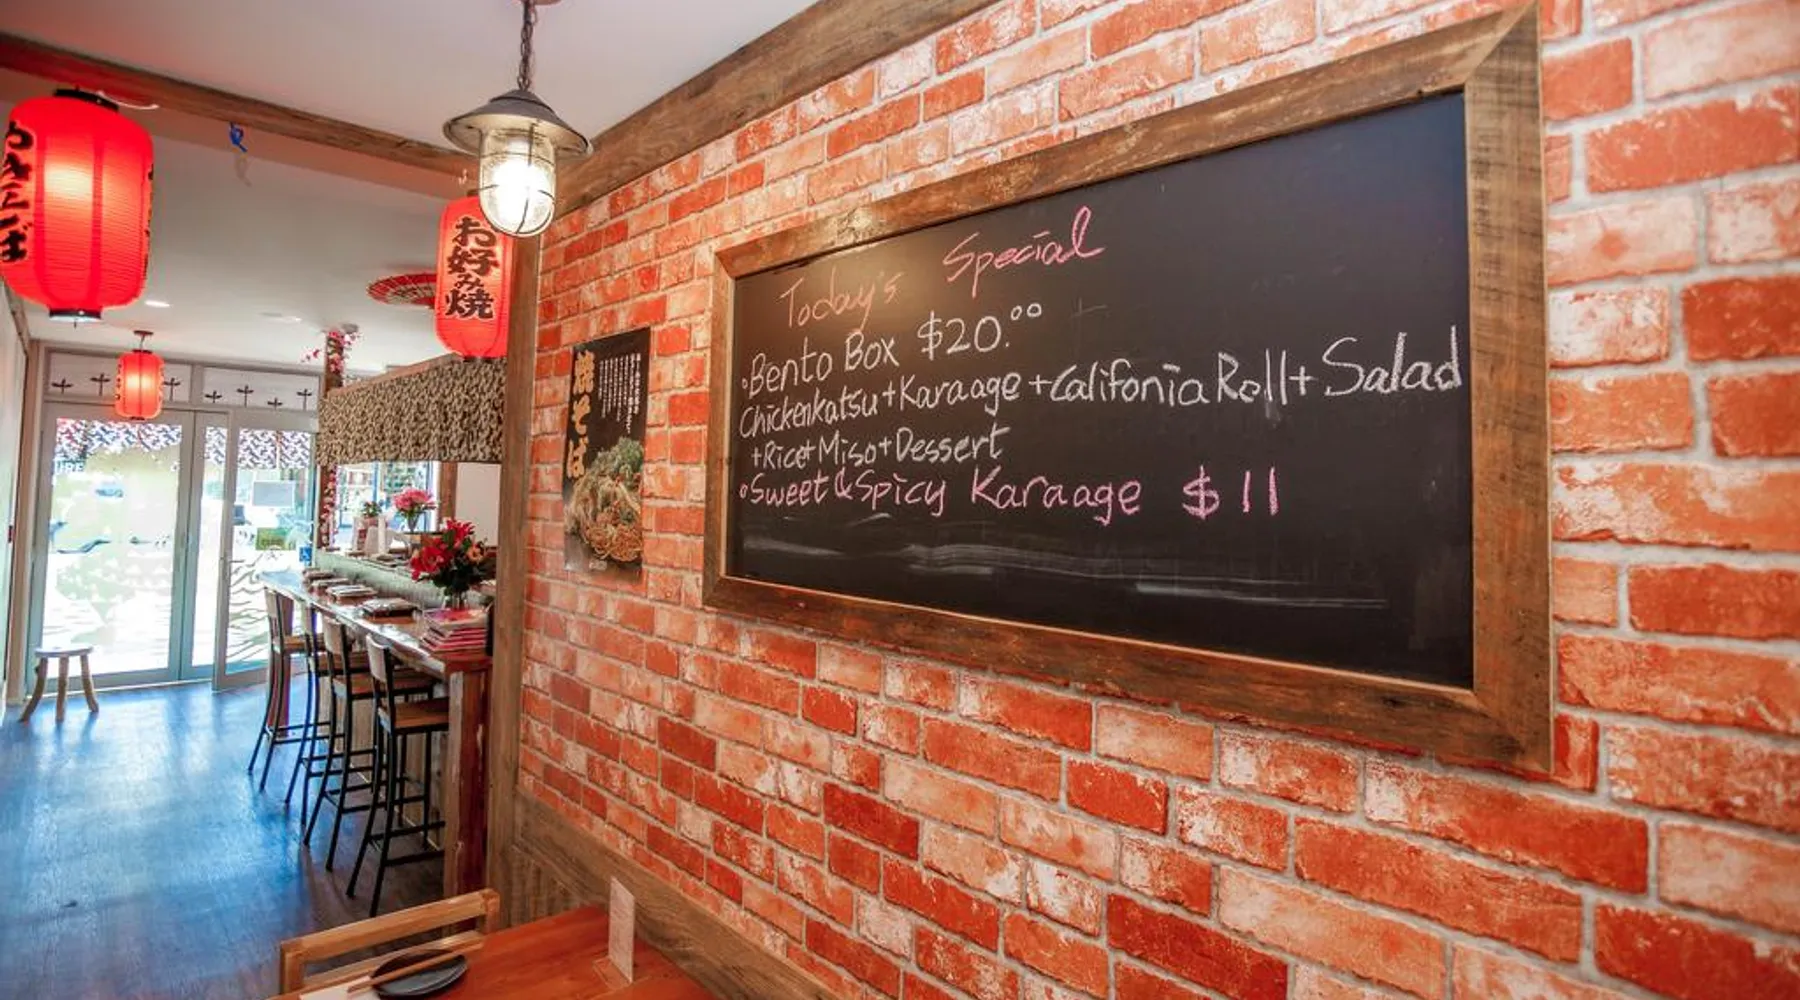 お好み焼
焼そば
Today's Special
•Bento Box $20.00
Chickenkatsu+Karaage+Califonia Roll+Salad
+Rice+Miso+Dessert
•Sweet & Spicy Karaage $11